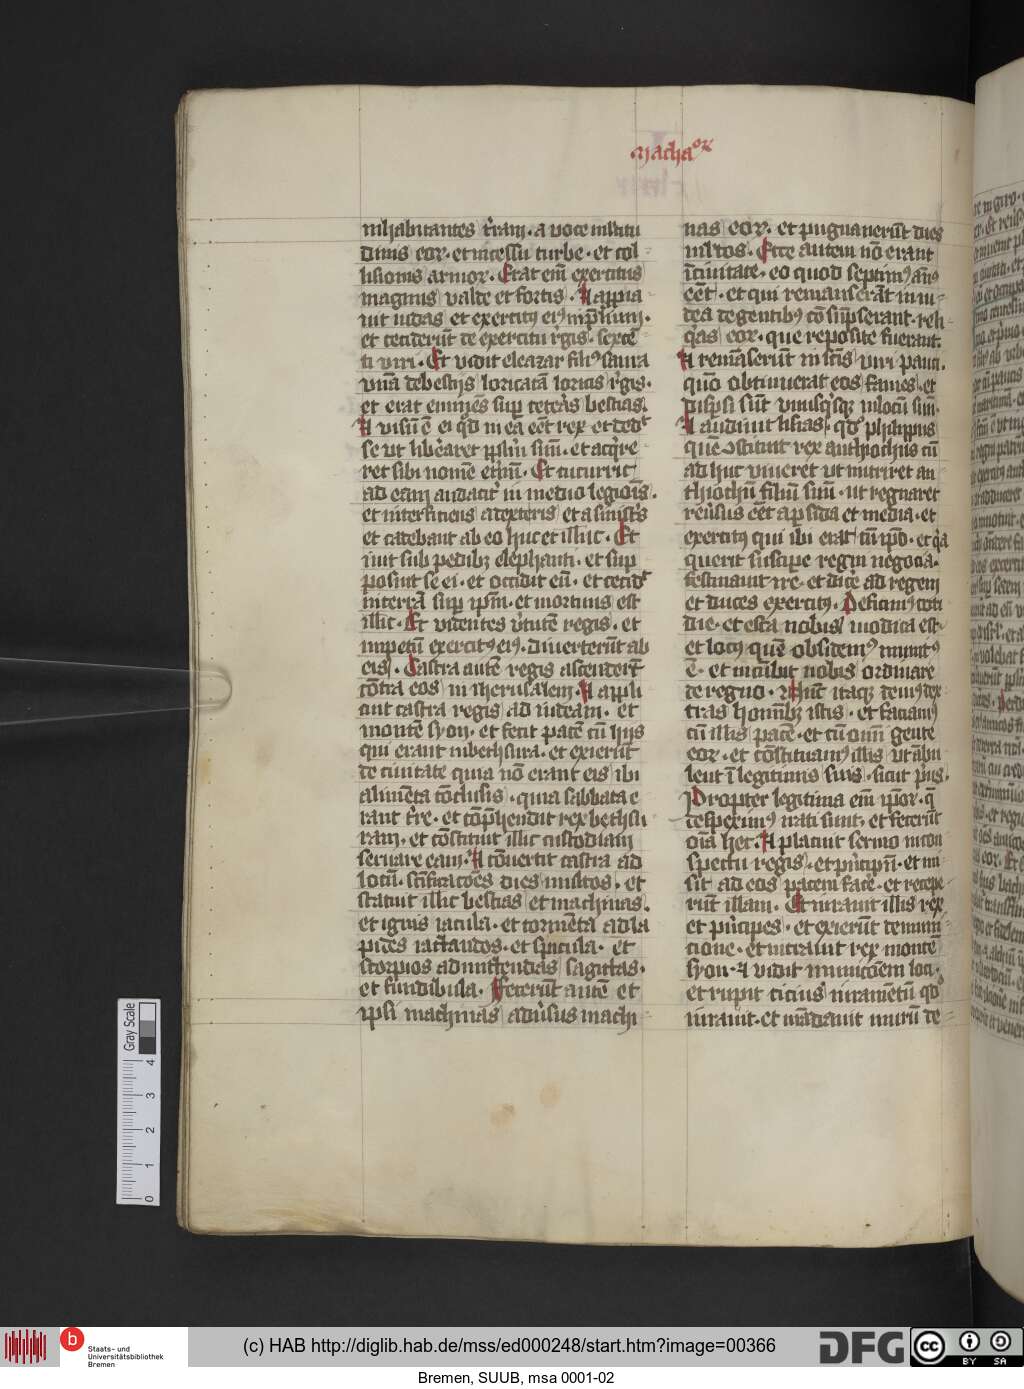 Macha oꝝ
inhabitantes t̓ram · a voce multitu
dinis eoꝝ · et incessu turbe · et col
lisionis armoꝝ · Erat em̄ exercitus
magnus valde et fortis · Et appia
uit iudas et exercitꝰ eiꝰ in p̄lium ·
et ceciderūt de exercitu r̓gis · sexcē
ti viri · Et vidit eleazar filiꝰ saura
vnā de bestijs loricatā loricis r̓gis ·
et erat emin̄es sup̄ ceteras bestias ·
Et visū ē ei qd̓ in ea eēt rex · et dedᵗ
se vt lib̓aret pp̄lm̄ suū · et acq̓re
ret sibi nomē et̓nū · Et cucurrit
ad eam audact̓ in medio legiōis ·
et interficiens a dextris et a sinistris
et cadebant ab eo huc et illuc · Et
iuit sub pedibꝫ elephanti · et sup
posuit se ei · et occidit eū · et cecidᵗ
in terrā sup̄ ip̄m · et mortuus est
illic · Et videntes v̓tutē regis · et
impetū exercitꝰ eiꝰ · diuerterūt ab
eis · Castra autē regis ascenderūt
cōtra eos in iherusalem · Et appli
cuit castra regis ad iudeam · et
montē syon · et fecit pacē cū hijs
qui erant in bethsura · et exierūt
de ciuitate quia nō erant eis ibi
alimēta cōclusis · quia sabbata e
rant t̓re · et cōp̄hendit rex bethsu
ram · et cōstituit illic custodiam
seruare eam · Et cōuertit castra ad
locū · sc̄ificacōes dies multos · et
statuit illic bestias et machinas ·
et ignis iacula · et tormēta ad la
pides iactandos · et spicula · et
scorpios ad mittendas sagittas ·
et fundibula · Fecerūt autē et
ipsi machinas adu̓sus machi
nas eoꝝ · et pugnauerūt dies
multos · Esce autem nō erant
ī ciuitate · eo quod septimꝰ anꝰ
eēt · et qui remanserāt in iu
dea de gentibꝫ cōsūpserant · reli
q̓as eoꝝ · que reposite fuerant ·
Et remāserūt in sc̄is viri pauci ·
quō obtinuerat eos fames · et
disp̄si sūt vnusq̓sqꝫ in locū suū ·
Et audiuit lisias · qd̓ philippus
quē ꝯstituit rex anthiochus cū
ad huc viueret vt nutriret an
thiochū filiū suū · ut regnaret
reuersus eēt a p̄sida et media · et
exercitꝰ qui ibi erat cū ip̄o · et q̓a
querit suscipe regni negocia ·
festinauit ire · et dic̓e ad regem
et duces exercitꝰ · Deficimꝰ coti
die · et esca nobis modica est ·
et locꝰ quē obsidemꝰ munitꝰ
ē · et incūbit nobis ordinare
de regno · Nūc itaqꝫ demꝰ dex
tras hominibꝫ istis · et faciamꝰ
cū illis pacē · et cū omi gente
eoꝝ · et cōstituamꝰ illis vt ābu
lent ī legitimis suis · sicut prius ·
Propter legitima em̄ ip̄oꝝ · q̄
despeximꝰ irati sunt · et fecerūt
oīa hec · Et placuit sermo in con
spectu regis · et p̓ncipū · et mi
sit ad eos pacem face · et recepe
rūt illam · Et iurauit illis rex
et p̓ncipes · et exierūt de muni
cione · et intrauit rex montē
syon · Et vidit municōem loci ·
et rupit cicius iuramētū qd̓
iurauit · et mādauit murū de